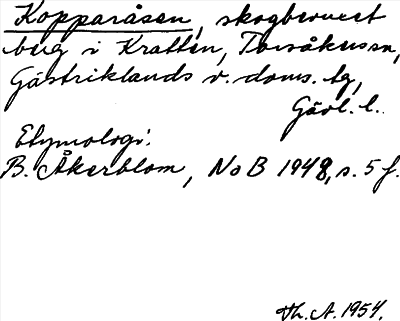 Kopparåsen, skogbevuxet
berg i Kratten, Torsåkers sn,
Gästriklands v. doms. tg,
Gävl. l.
Etymologi:
B. Åkerblom, NoB 1948, s. 5 f.
Th. A. 1954.